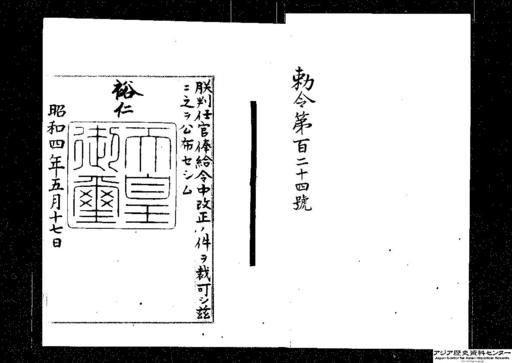 勅令第百二十四號
朕判任官俸給令中改正ノ件ヲ裁可シ茲
ニ之ヲ公布セシム
裕仁
天皇御璽
昭和四年五月十七日
アジア歴史資料センター
Japan Center for Asian Historical Records